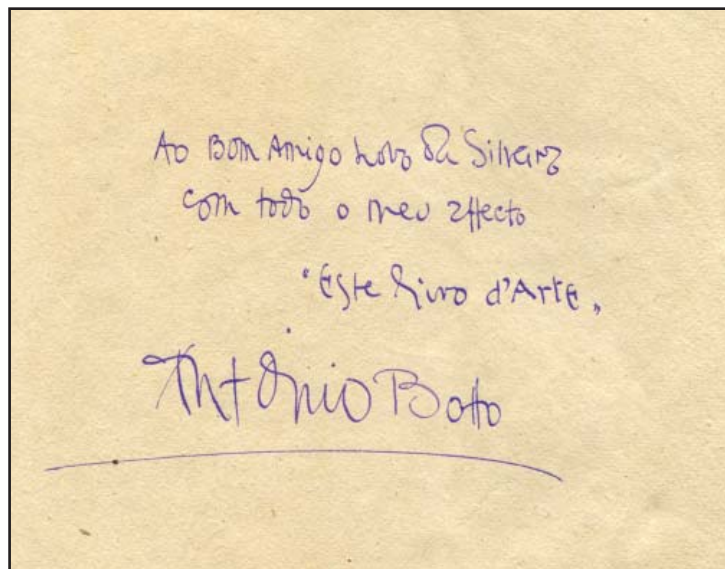 Ao Bom Amigo Lobo da Silveira
com todo o meu affecto
"Este Livro d'Arte„
António Botto